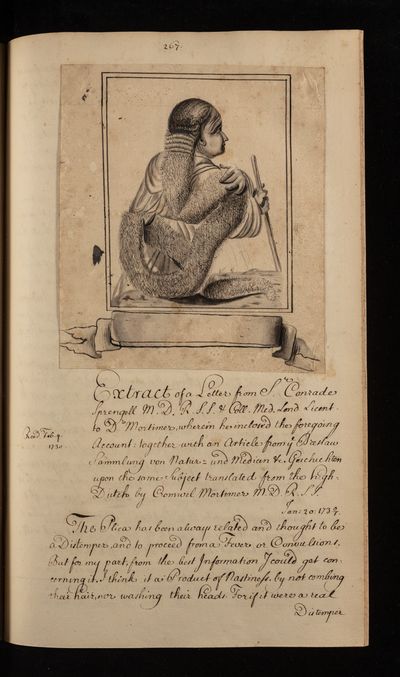 267.
Extract of a Letter from Sr. Conrade
Sprengell M.D. R.S.S. & Coll. Med. Lond. Licent.
to Dr. Mortimer, wherein he inclosed the foregoing
Account: together with an Article from ye Breslau
Sammlung von Natur- und Medicin &c. Geschichten
upon the same Subject translated from the high-
Dutch by Cromwel Mortimer M.D. R.S.S.
Read Feb. 9.
Jan: 20. 173
The Plica has been always related and thought to be
a Distemper, and to proceed from a Fever or Convulsions.
But for my part, from the best Information I could get con-
cerning it, I think it a Product of Nastiness, by not combing
their hair, nor washing their heads. For if it were a real
Distemper